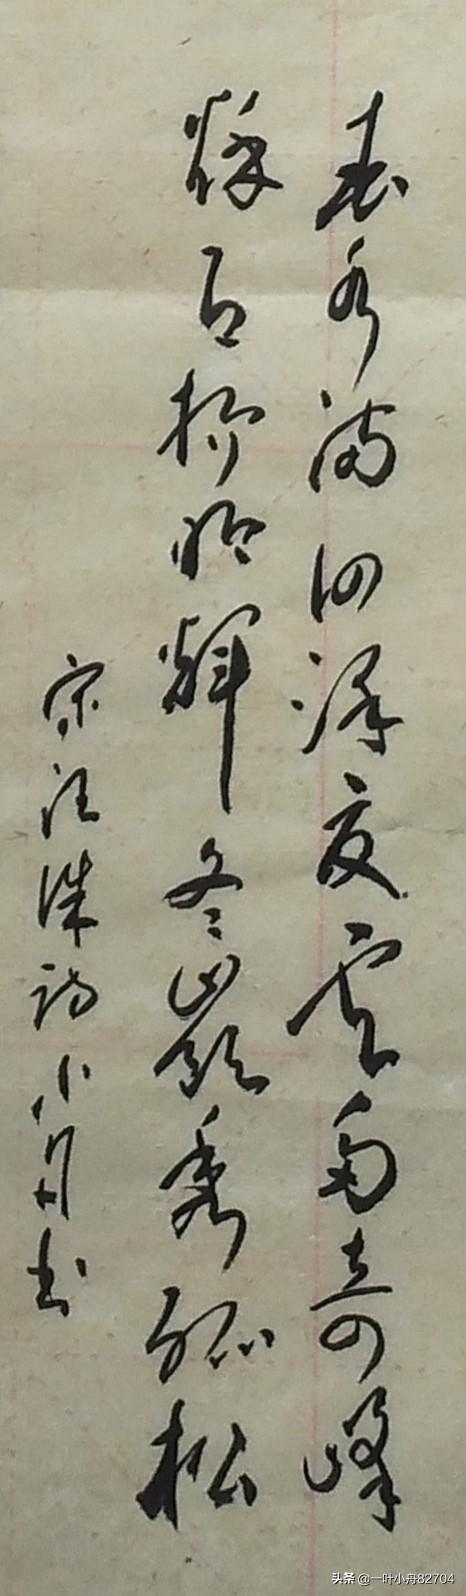 春水满四泽夏雲多奇峰
秋月扬明辉冬嶺秀孤松
宋汪洙诗小舟书
头条 @一叶小舟82704